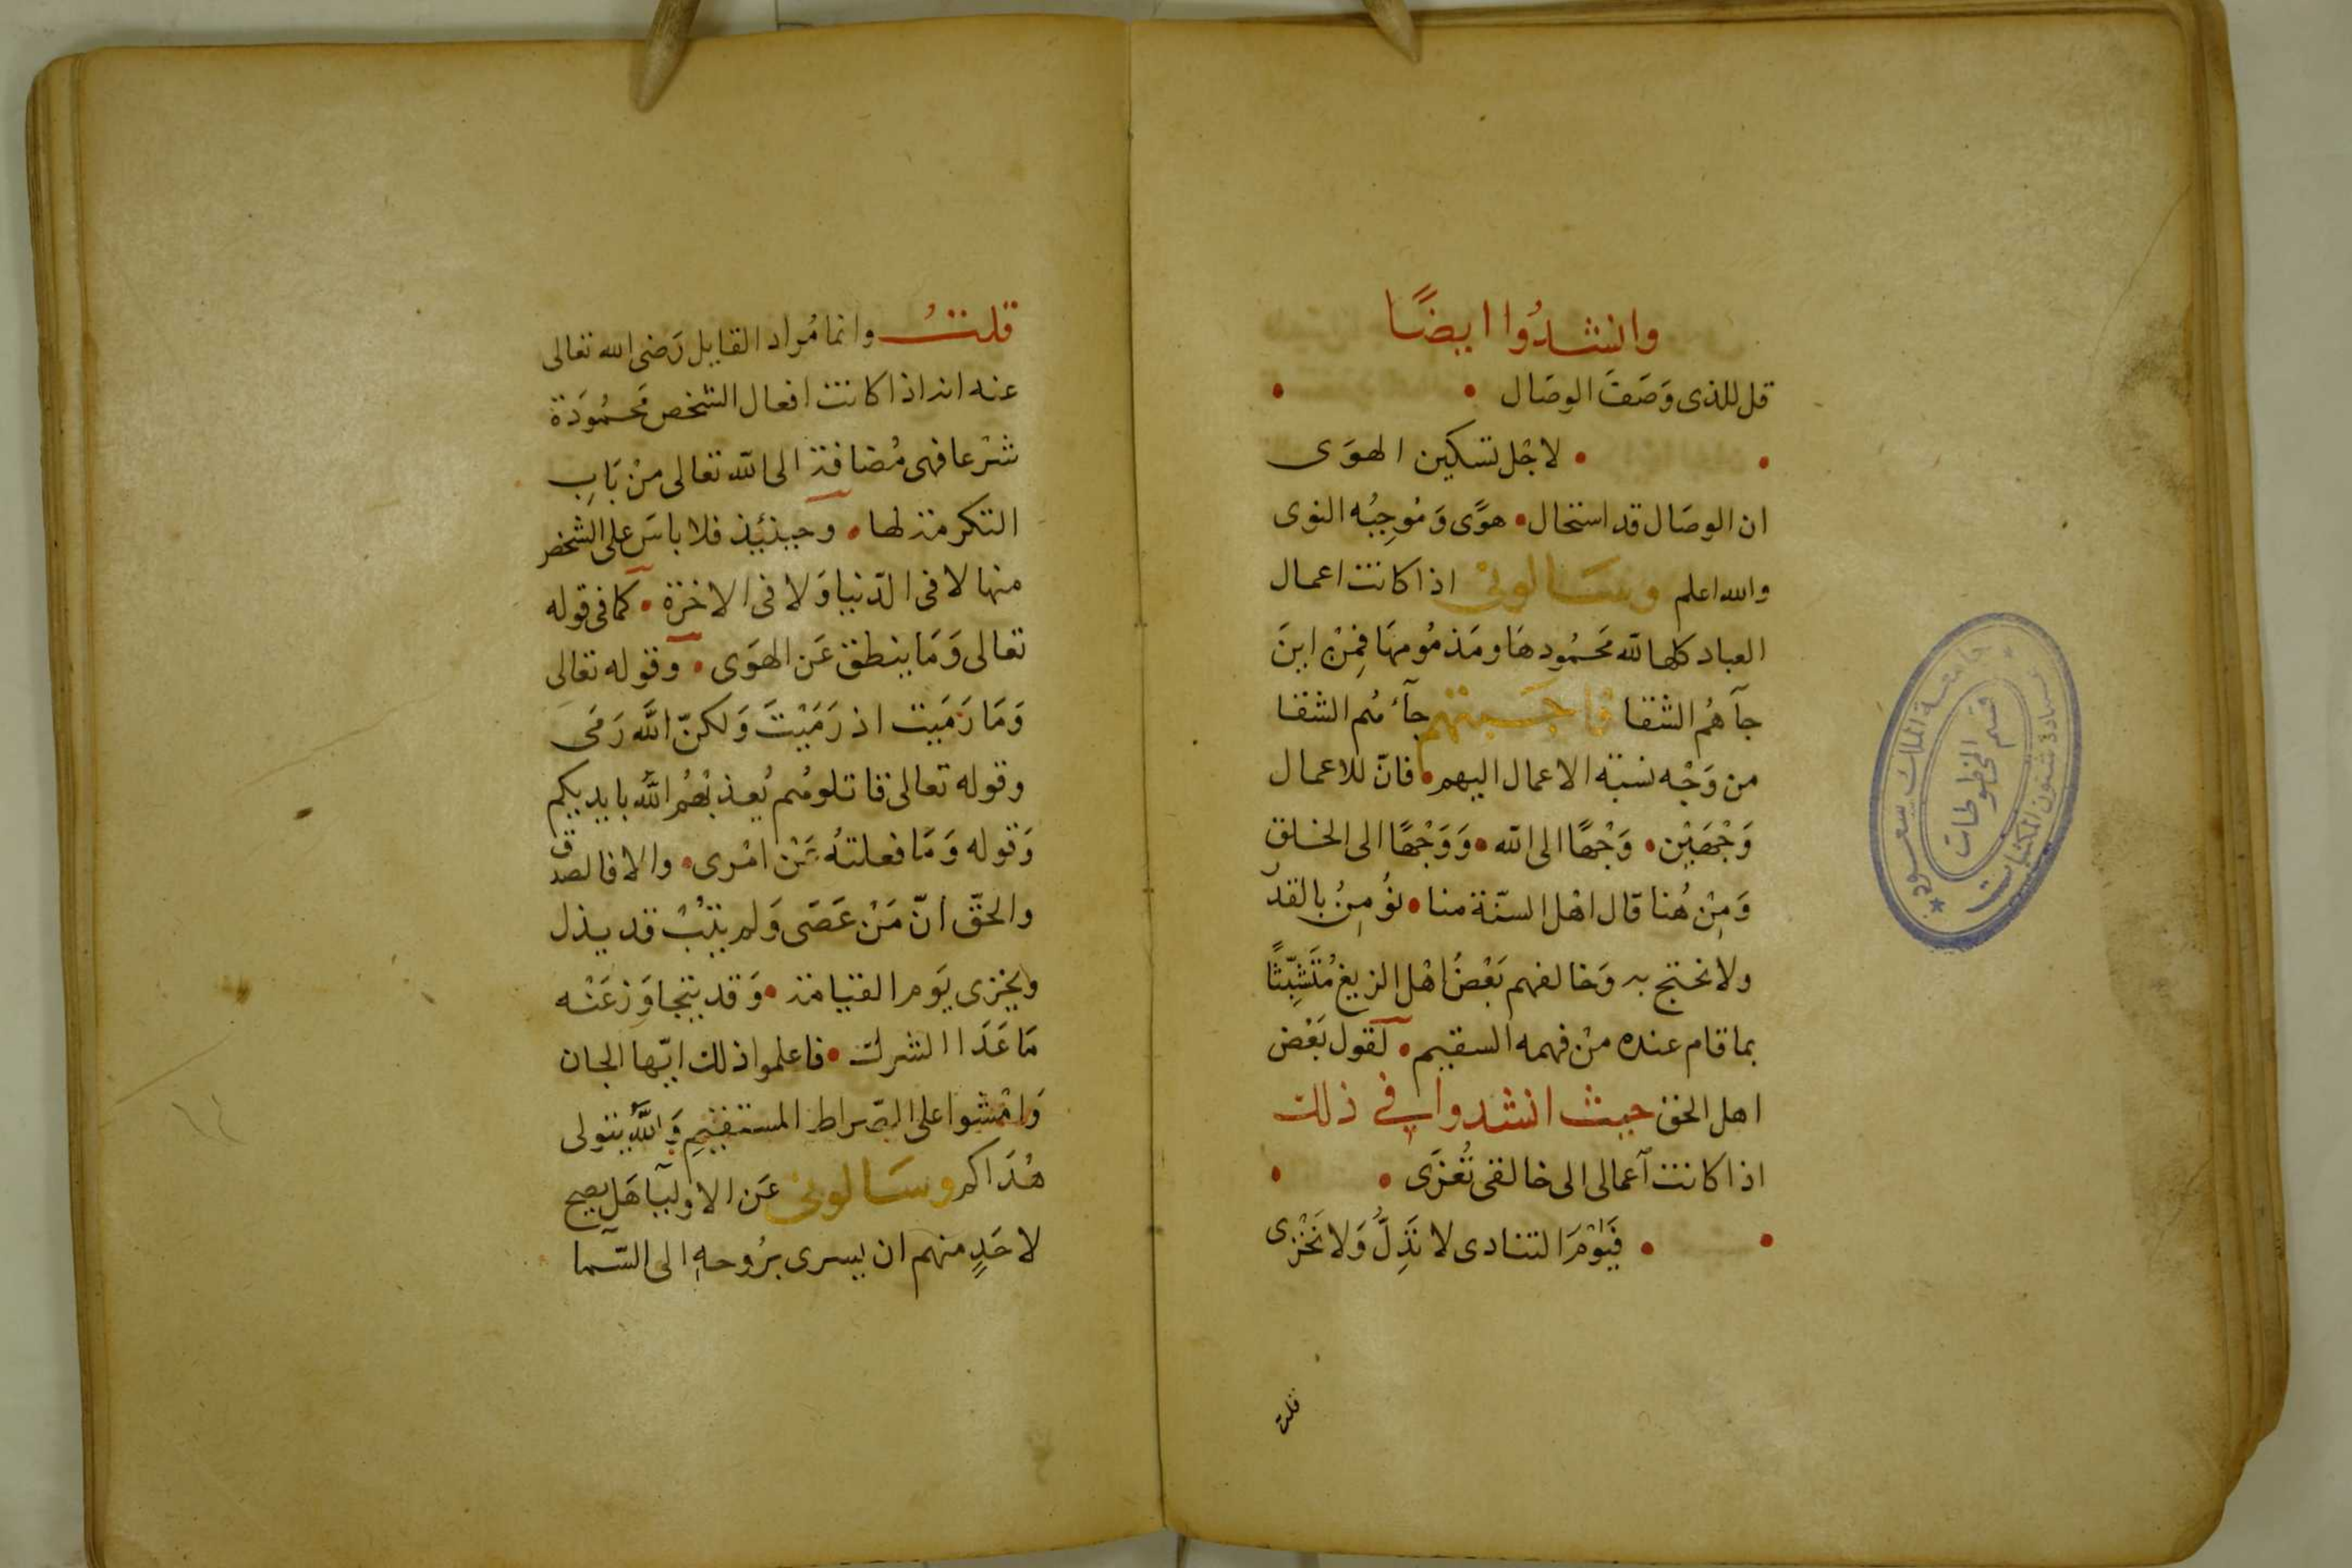 وانشدُوا ايضًا
قل للذى وَصَفَ الوصَال
لاجْل تسكين الهوَى
ان الوصَال قد استحال هوًى وَمُوجِبُه النوى
والله اعلم وسَالونى اذا كانت اعمال
العباد كلها لله محمُودهَا ومَذمُومهَا فمِنْ اينَ
جآهُم الشقا فاجَبتهم جآءهُم الشقا
من وَجْه نسبَة الاعمال اليهم فانّ للاعمال
وَجْهَيْن وَجْهًا الى الله وَوَجْهًا الى الخلق
وَمِنْ هُنا قال اهْل السّنة منا نؤمِنُ بالقدر
ولا نحتج به وَخالفهم بَعْضُ اهْل الزيغ مُتَشبِّثًا
بما قام عنده مِنْ فهمه السقيم لقول بَعْض
اهل الحق حيث انشدوا فى ذلك
اذا كانت آعمالى الى خالقى تُعْزَى
فَيَوْمَ التنادى لا نَذِلَّ وَلا نَخْزى
قلت
قلتُ وانما مُراد القايل رَضى الله تعالى
عنه انه اذا كانت افعال الشخص محمُودَة
شرْعا فهى مُضافة الى الله تعالى مِنْ بَابِ
التكرمة لها وحينئيذ فلا باسَ على الشخص
منها لا فى الدّنيا وَلا فى الاخرَة كما فى قوله
تعالى وَمَا ينطق عَن الهوَى وقوله تعالى
وَمَا رَمَيت اذ رَمَيْتَ وَلكنّ اللَّه رَمَى
وقوله تعالى قاتلوهُم يُعذبْهُمُ اللَّه بايديكم
وَقوله وَمَا فعلتهُ عَنْ امْرى والا فالصدق
والحقّ انّ مَنْ عَصَى وَلم يتبْ قد يذل
ويخزى يَوم القيامة وَقد يتجاوَز عَنْه
مَا عَدَا الشرك فاعلموا ذلك ايّها الجان
وَامْشوا على الصّراط المستقيمِ وَاللَّه يتولى
هُدَاكم وسَالونى عَن الاوليآ هَل يصح
لاحَدٍ منهم ان يسرى برُوحهِ الى السّمآ
جامعة الملك سعود
عمادة شئون المكتبات
قسم المخطوطات